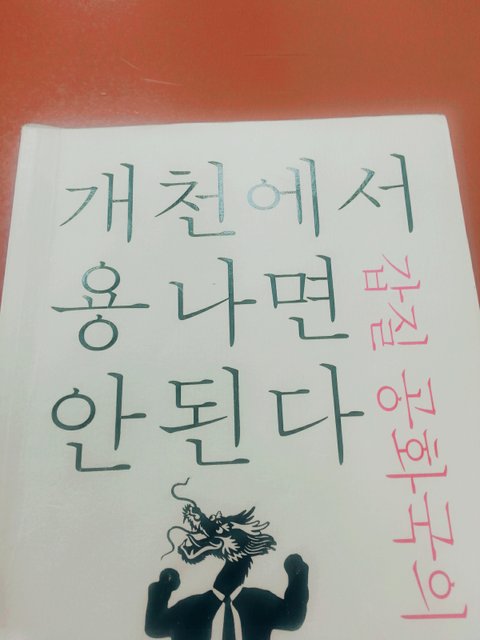 개천에서
용 나면
안 된다
갑질 공화국의